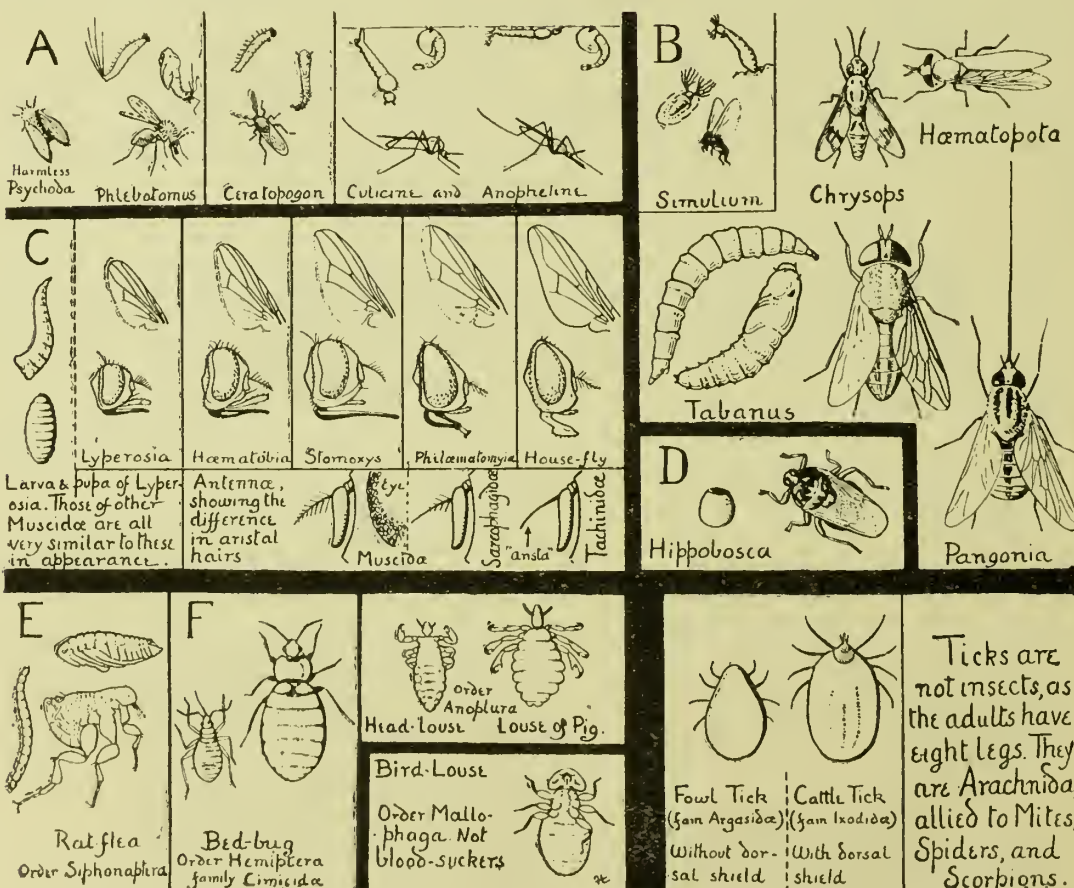 A
Harmless
Psychoda
Phlebotomus
Ceratopogon
Culicine and Anopheline
B
Simulium
Chrysops
Hæmatopota
Tabanus
Pangonia
C
Lyperosia
Hæmatobia
Stomoxys
Philæmatomyia
House-fly
Larva & pupa of Lyper-
osia. Those of other
Muscidæ are all
very similar to these
in appearance.
Antennæ,
showing the
difference
in aristal
hairs
Eye
Muscidæ
Sarcophagidæ
"arista"
Tachinidæ
D
Hippobosca
E
Rat flea
Order Siphonaptera
F
Bed-bug
Order Hemiptera
family Cimicidæ
Order
Anoplura
Head-louse
Louse of Pig.
Bird-Louse
Order Mallo-
phaga. Not
blood-suckers
Fowl Tick
(fam Argasidæ)
Without dor-
sal shield
Cattle Tick
(fam Ixodidæ)
With dorsal
shield
Ticks are
not insects, as
the adults have
eight legs. They
are Arachnida
allied to Mites,
Spiders, and
Scorpions.